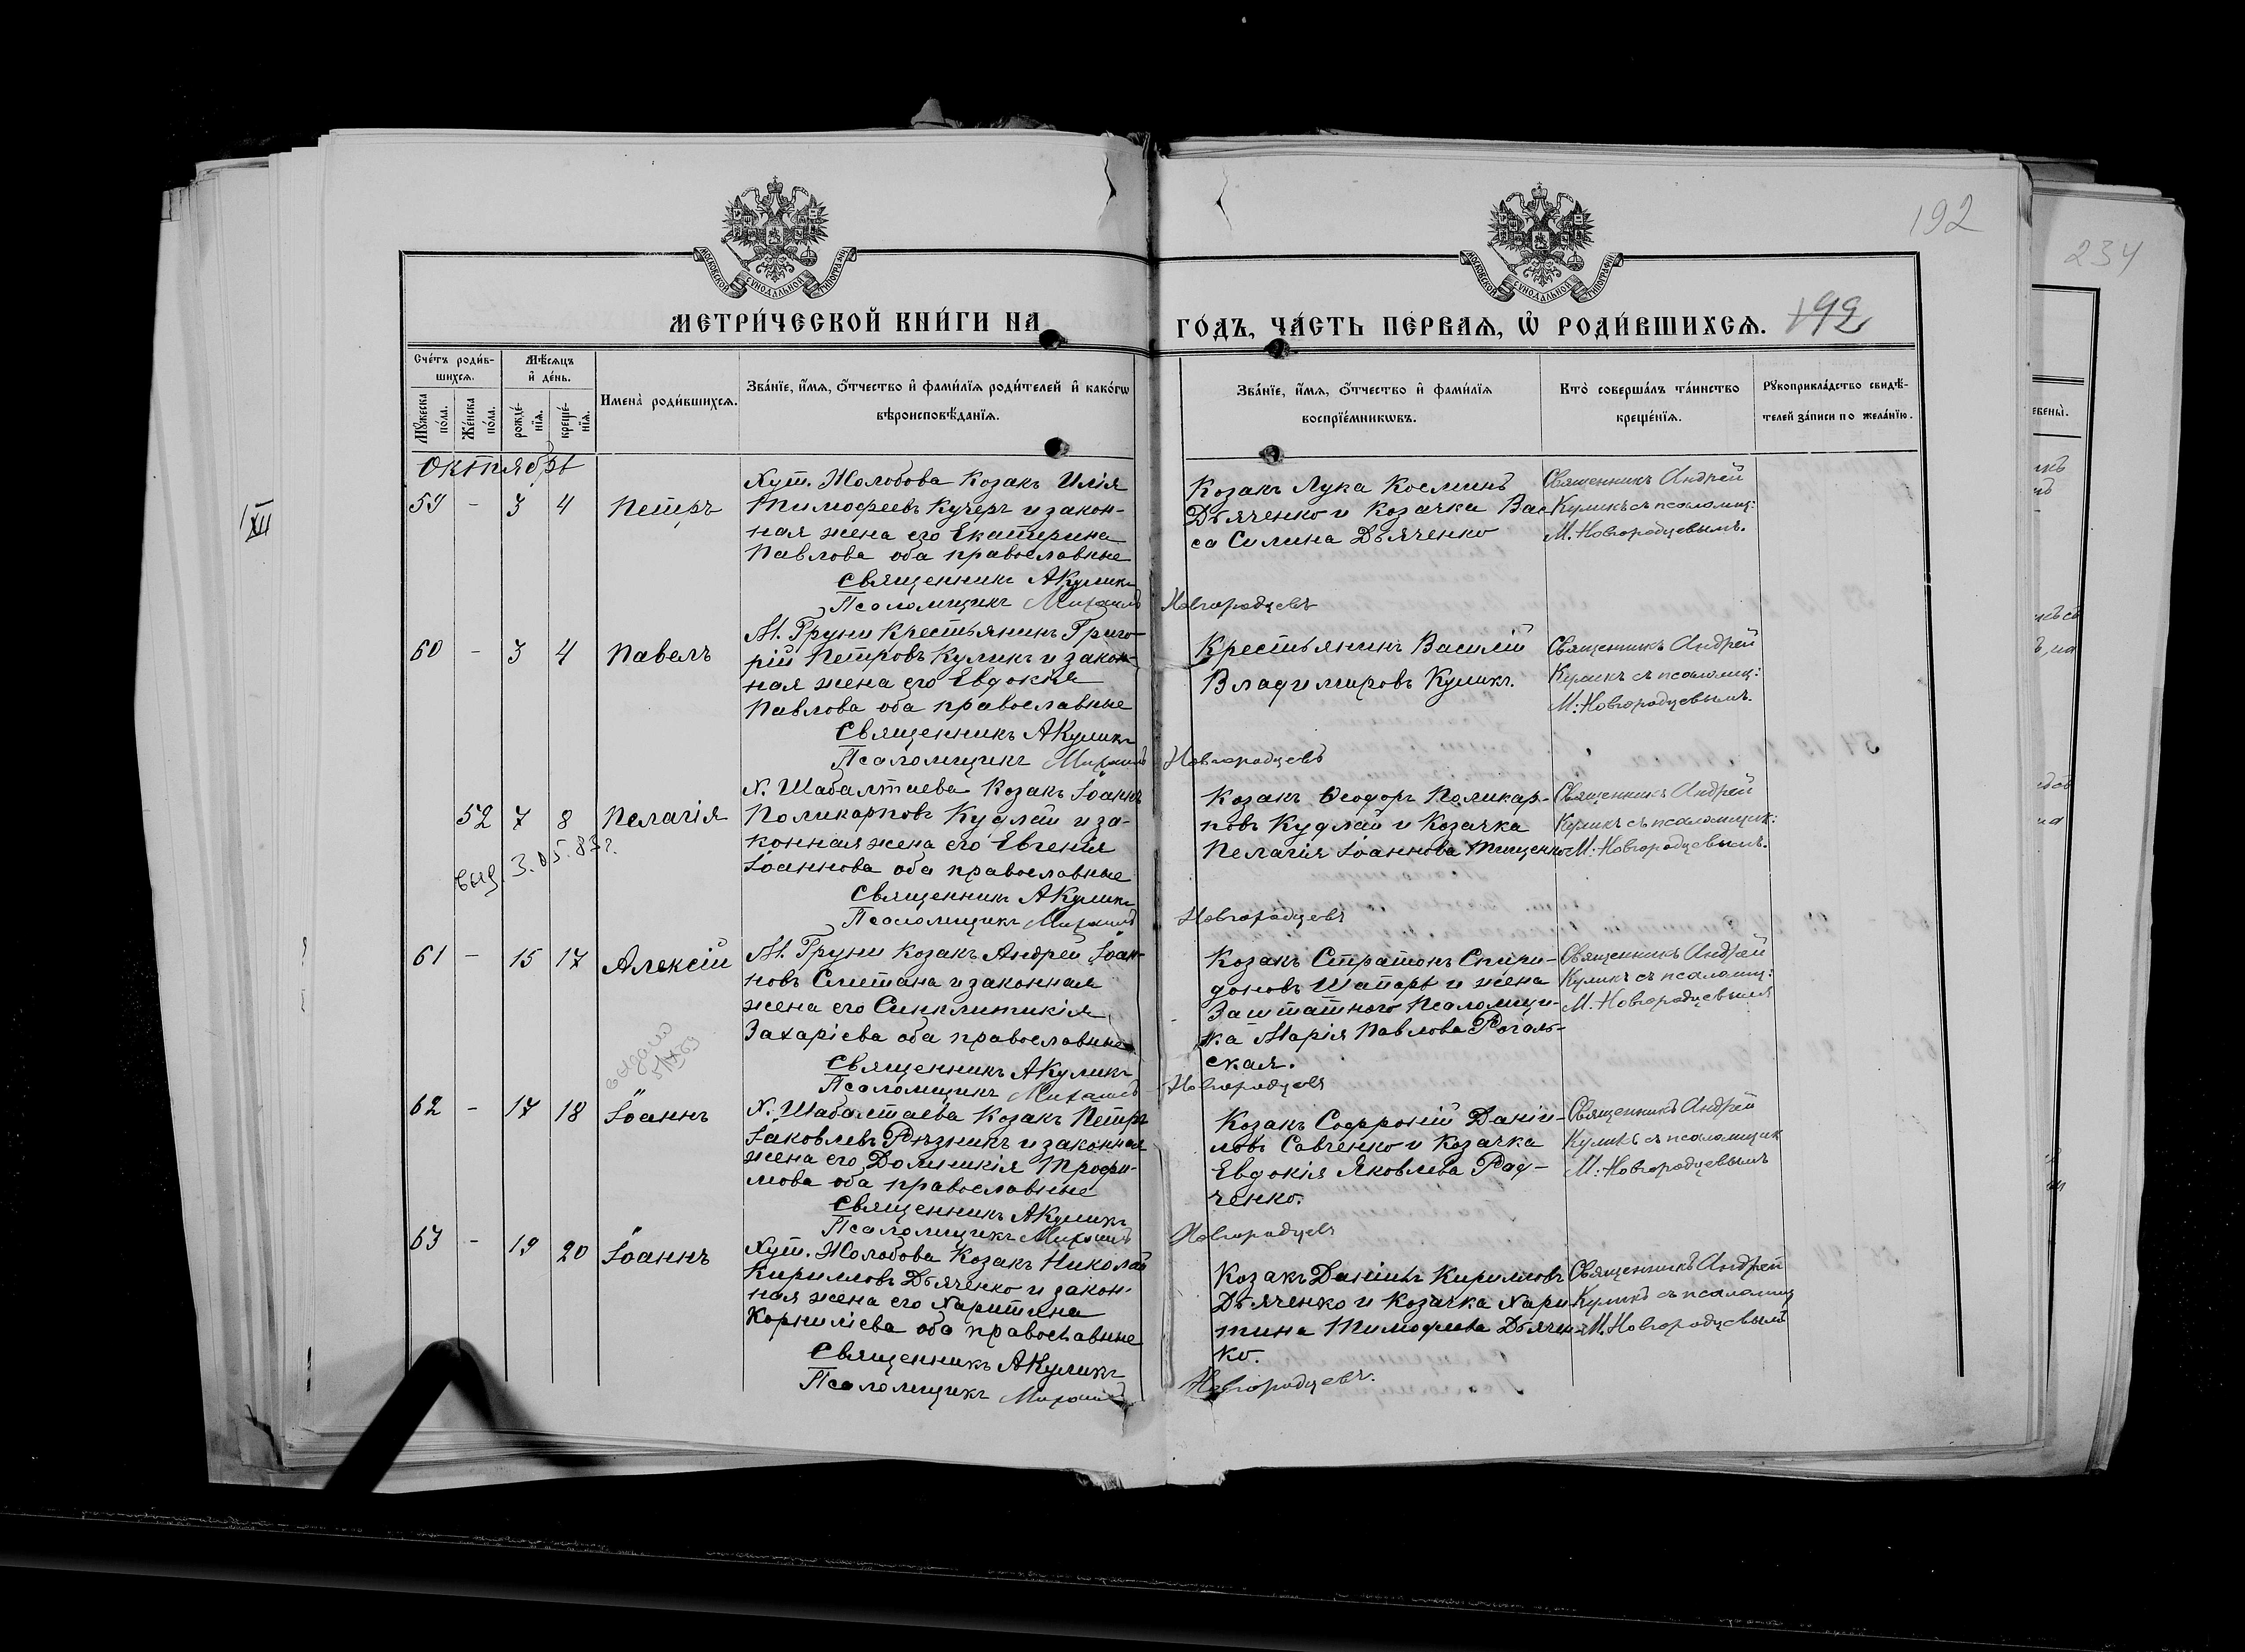 192
234
МОСКОВСКОЙ СѴНОДАЛЬНОЙ ТИПОГРАФІИ
МОСКОВСКОЙ СѴНОДАЛЬНОЙ ТИПОГРАФІИ
МЕТРИ́ЧЕСКОЙ КНИ́ГИ НА
ГО́ДЪ, ЧА́СТЬ ПЕ́РВАѦ, Ѡ҆ РОДИ́ВШИХСѦ.
192
Сче́тъ роди́в-
шихсѧ.
Мѣ́сѧцъ
и҆ де́нь.
Мꙋ́жеска
по́ла.
Же́нска
по́ла.
рожде́-
нїѧ.
креще́-
нїѧ.
Имена̀ роди́вшихсѧ.
Зва́нїе, и҆́мѧ, ѻ҆́тчество и҆ фами́лїѧ роди́телей и҆ како́гѡ
вѣроисповѣ́данїѧ.
Зва́нїе, и҆́мѧ, ѻ҆́тчество и҆ фами́лїѧ
воспрїе́мникѡвъ.
Кто̀ соверша́лъ та́инство
креще́нїѧ.
Рꙋкоприкла́дство свидѣ́-
телей за́писи по жела́нїю.
Октябрь
59 - 3 4 Петръ
Хут. Жолобова Козакъ Илія
Тимофеевъ Кучеръ и закон-
ная жена его Екатерина
Павлова оба православные
Священникъ АКуликъ
Псаломщикъ Михаилъ Новгородцевъ
Козакъ Лука Косминъ
Дьяченко и Козачка Вас
са Силина Дьяченко
Священникъ Андрей
Куликъ съ псаломщ:
М. Новгородцевымъ.
XII
60 - 3 4 Павелъ
М. Груни Крестьянинъ Григо-
рій Петровъ Куликъ и закон-
ная жена его Евдокія
Павлова оба православные
Священникъ АКуликъ
Псаломщикъ Михаилъ Новгородцевъ
Крестьянинъ Василій
Владимировъ Куликъ.
Священникъ Андрей
Куликъ съ псаломщ:
М: Новгородцевымъ.
52 7 8 Пелагія
выд. 3.05.83г.
Х. Шабалтаева Козакъ Іоаннъ
Поликарповъ Кудлай и за-
конная жена его Евгенія
Іоаннова оба православные
Священникъ АКуликъ
Псаломщикъ Михаилъ Новгородцевъ
Козакъ Ѳеодоръ Поликар-
повъ Кудлай и Козачка
Пелагія Іоаннова Тищенко
Священникъ Андрей
Куликъ съ псаломщик:
М: Новгородцевымъ.
61 - 15 17 Алексій
выдано
М. Груни Козакъ Андрей Іоан-
новъ Сметана и законная
жена его Синклитикія
Захаріева оба православные
Священникъ АКуликъ
Псаломщикъ Михаилъ Новгородцевъ
Козакъ Стратонъ Спири-
доновъ Шапарь и жена
Заштатного Псаломщи-
ка Марія Павлова Рогаль-
ская.
Священникъ Андрей
Куликъ съ псаломщ:
М: Новгородцевымъ
62 - 17 18 Іоаннъ
Х. Шабалтаева Козакъ Петръ
Іаковлевъ Рѣзникъ и законная
жена его Домникія Трофи-
мова оба православные
Священникъ АКуликъ
Псаломщикъ Михаилъ Новгородцевъ
Козакъ Софроній Даніи-
ловъ Савченко и Козачка
Евдокія Яковлева Рад-
ченко.
Священникъ Андрей
Куликъ съ псаломщик
М: Новгородцевымъ
63 - 19 20 Іоаннъ
Хут. Жолобова Козакъ Николай
Кирилловъ Дьяченко и закон-
ная жена его Харитина
Корниліева оба православные
Священникъ АКуликъ
Псаломщикъ Михаилъ Новгородцевъ.
Козакъ Даніилъ Кирилловъ
Дьяченко и Козачка Хари-
тина Тимофеева Дьячен-
ко.
Священникъ Андрей
Куликъ съ псаломщ
М. Новгородцевымъ